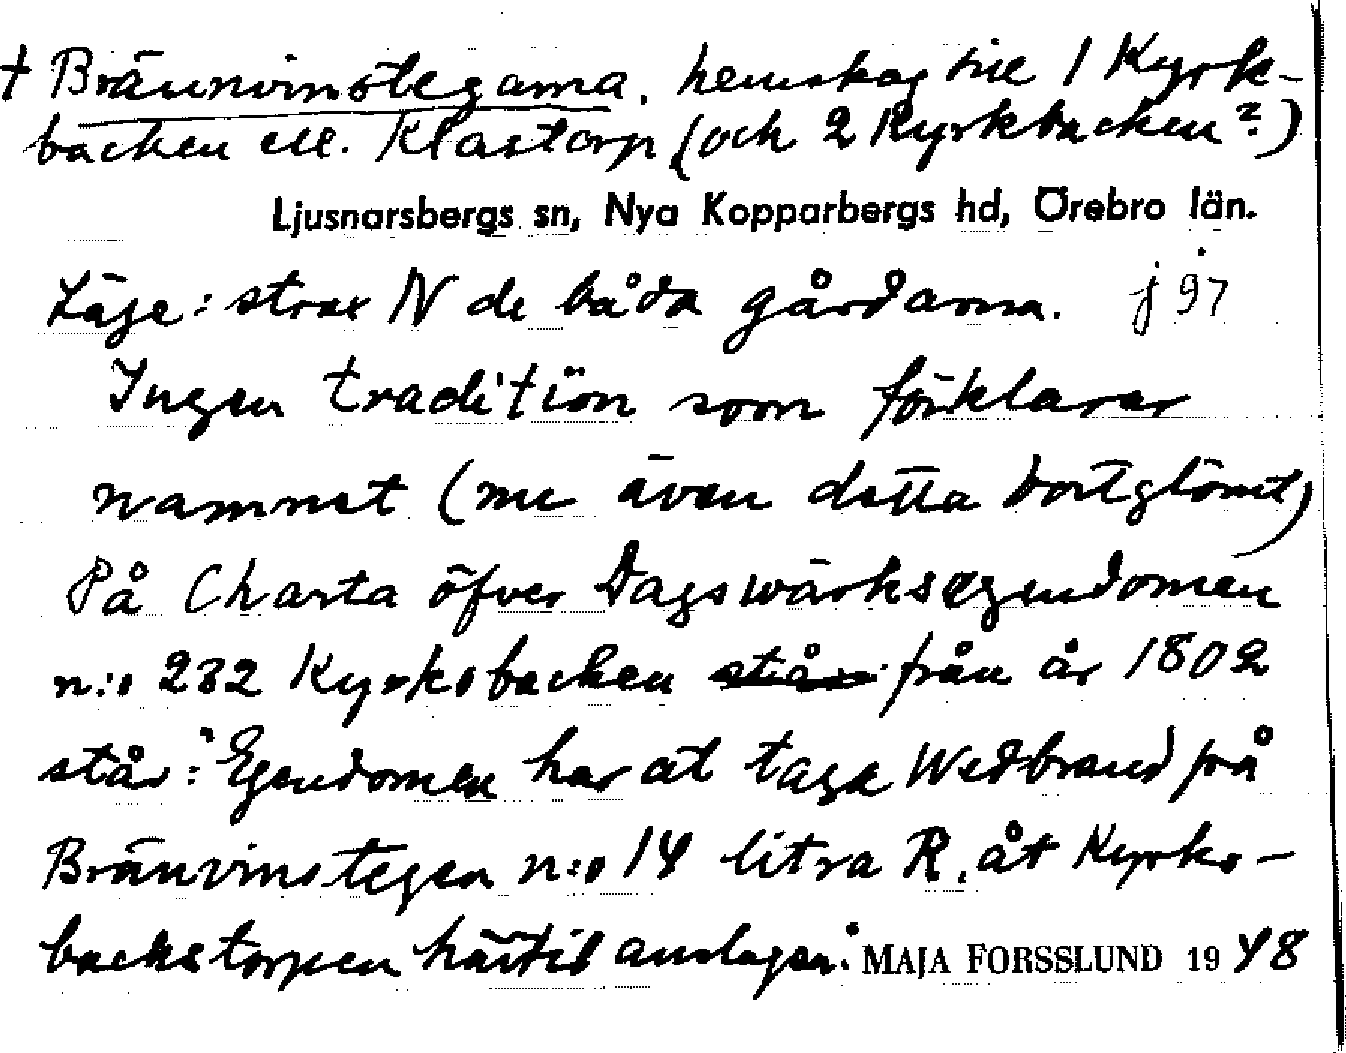 † Brännvinstegarna, hemskog till 1 Kyrk-
backen ell. Klastorp (och 2 Kyrkbacken?)
Ljusnarsbergs sn, Nya Kopparbergs hd, Örebro län.
Läge: strax N de båda gårdarna. j 97
Ingen tradition som förklarar
namnet (nu även detta bortglömt)
På Charta öfver Dagswärksegendomen
n:o 232 Kyrkobacken från år 1802
står: "Egendomen har at taga Wedbrand på
Bränvinstegen n:o 14 litra R. åt Kyrko-
backstorpen härtil anslagen." MAJA FORSSLUND 1948